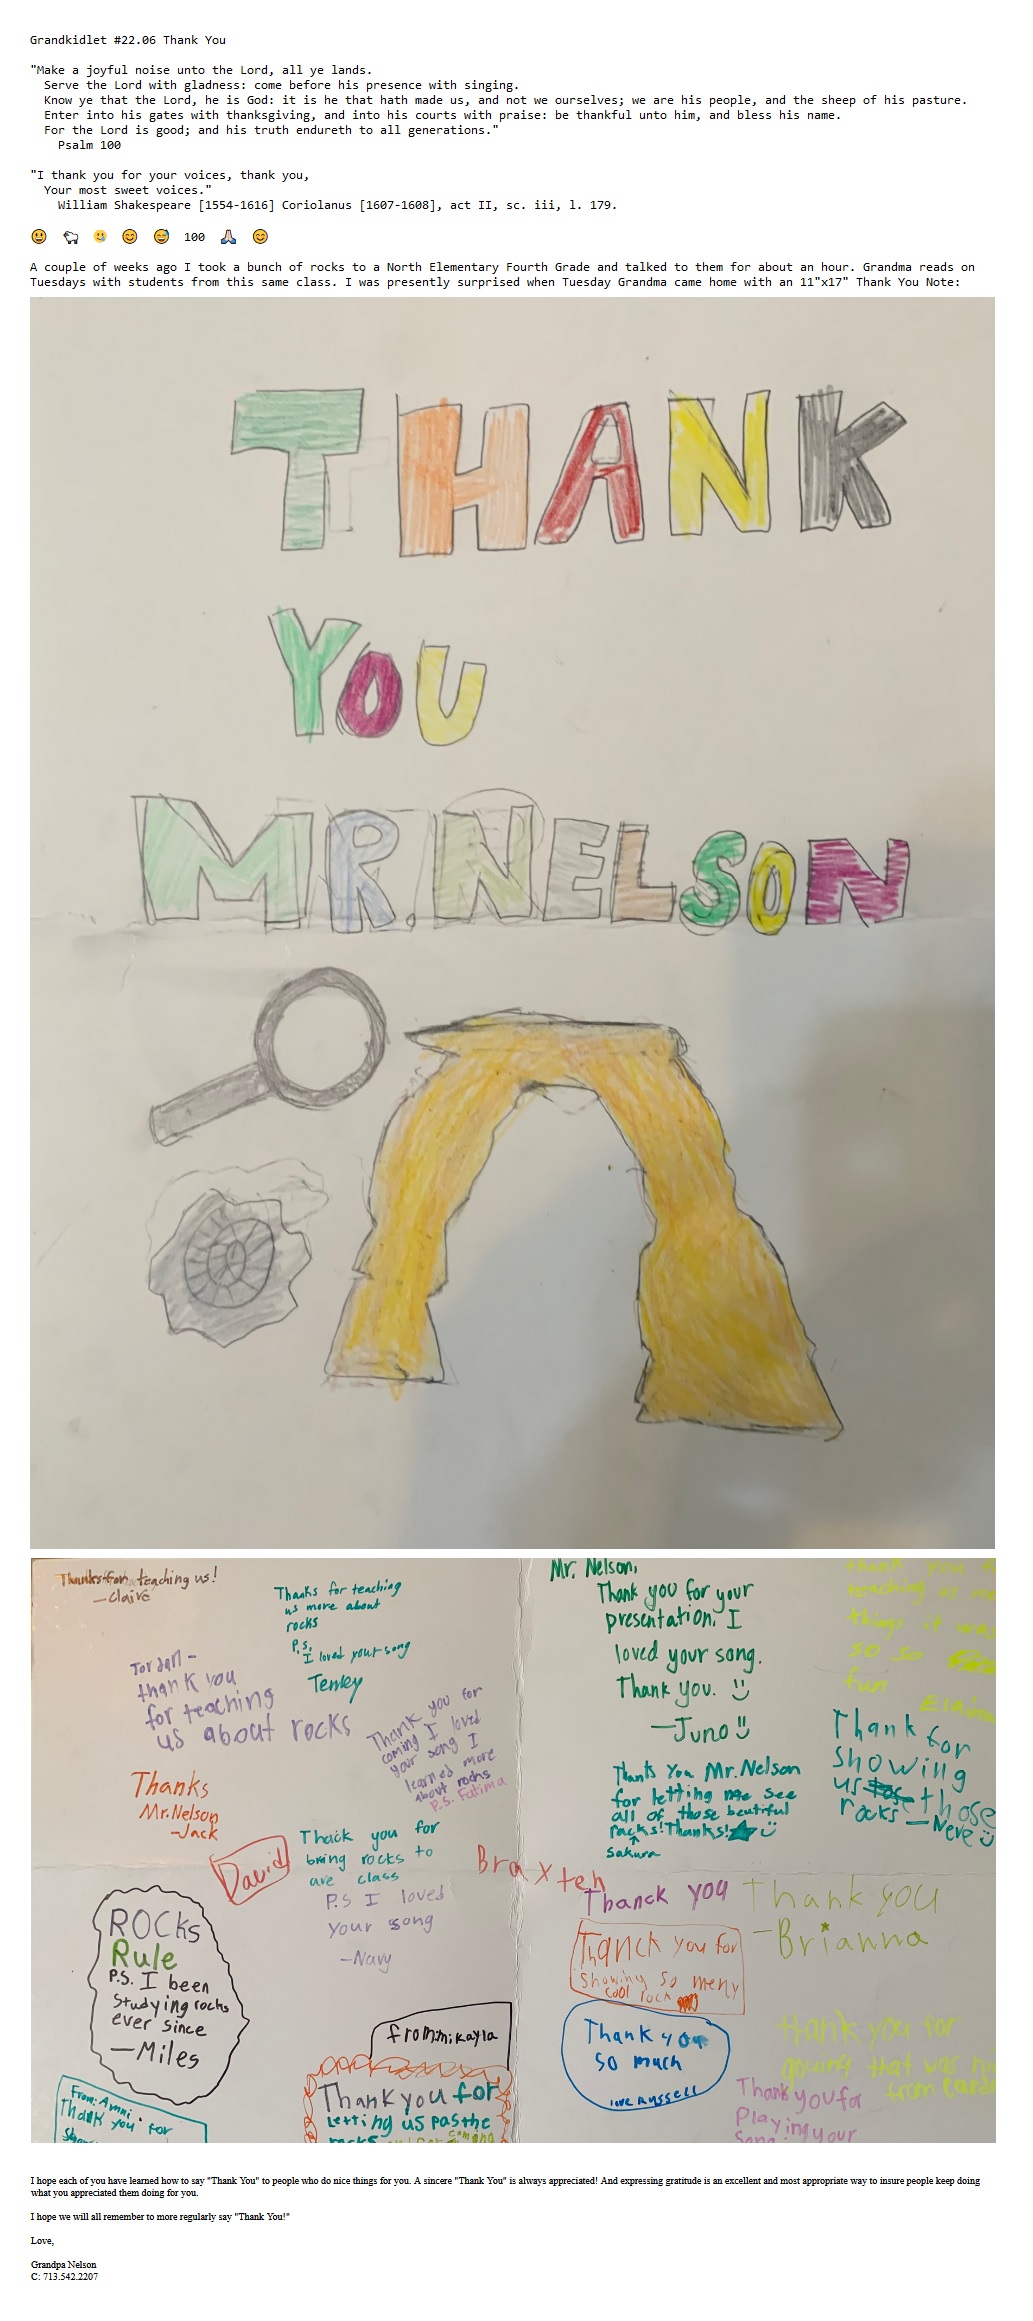 Grandkidlet #22.06 Thank You
"Make a joyful noise unto the Lord, all ye lands.
Serve the Lord with gladness: come before his presence with singing.
Know ye that the Lord, he is God: it is he that hath made us, and not we ourselves; we are his people, and the sheep of his pasture.
Enter into his gates with thanksgiving, and into his courts with praise: be thankful unto him, and bless his name.
For the Lord is good; and his truth endureth to all generations."
Psalm 100
"I thank you for your voices, thank you,
Your most sweet voices."
William Shakespeare [1554-1616] Coriolanus [1607-1608], act II, sc. iii, l. 179.
100
A couple of weeks ago I took a bunch of rocks to a North Elementary Fourth Grade and talked to them for about an hour. Grandma reads on
Tuesdays with students from this same class. I was presently surprised when Tuesday Grandma came home with an 11"x17" Thank You Note:
THANK
YOU
MR. NELSON
Thanks for teaching us!
—Claire
Thanks for teaching
us more about
rocks
P.s.
I loved your song
Tenley
Jordan -
thank you
for teaching
us about rocks
Thank you for
coming I loved
your song I
learned more
about rocks
P.S. Fatima
Thanks
Mr. Nelson
-Jack
David
Thack you for
bring rocks to
are class
P.S I loved
your song
-Navy
Braxten
ROCKs
Rule
P.S. I been
studying rocks
ever since
—Miles
From: Amni
Thank you for
from: mikayla
Thank you for
Letting us pas the
rocks
Mr. Nelson,
Thank you for your
presentation. I
loved your song.
Thank you.
—Juno
Thank You Mr. Nelson
for letting me see
all of those beutiful
rocks! Thanks!
Sakura
thank you
teaching us
things it was
so so
fun
Thank for
Showing
us those
rocks —Neve
Thanck you
Thank you
-Brianna
Thanck you for
showing so meny
cool rock
Thank you
so much
love Russell
thank you for
that was
from
Thank you for
Playing your
Song
I hope each of you have learned how to say "Thank You" to people who do nice things for you. A sincere "Thank You" is always appreciated! And expressing gratitude is an excellent and most appropriate way to insure people keep doing
what you appreciated them doing for you.
I hope we will all remember to more regularly say "Thank You!"
Love,
Grandpa Nelson
C: 713.542.2207